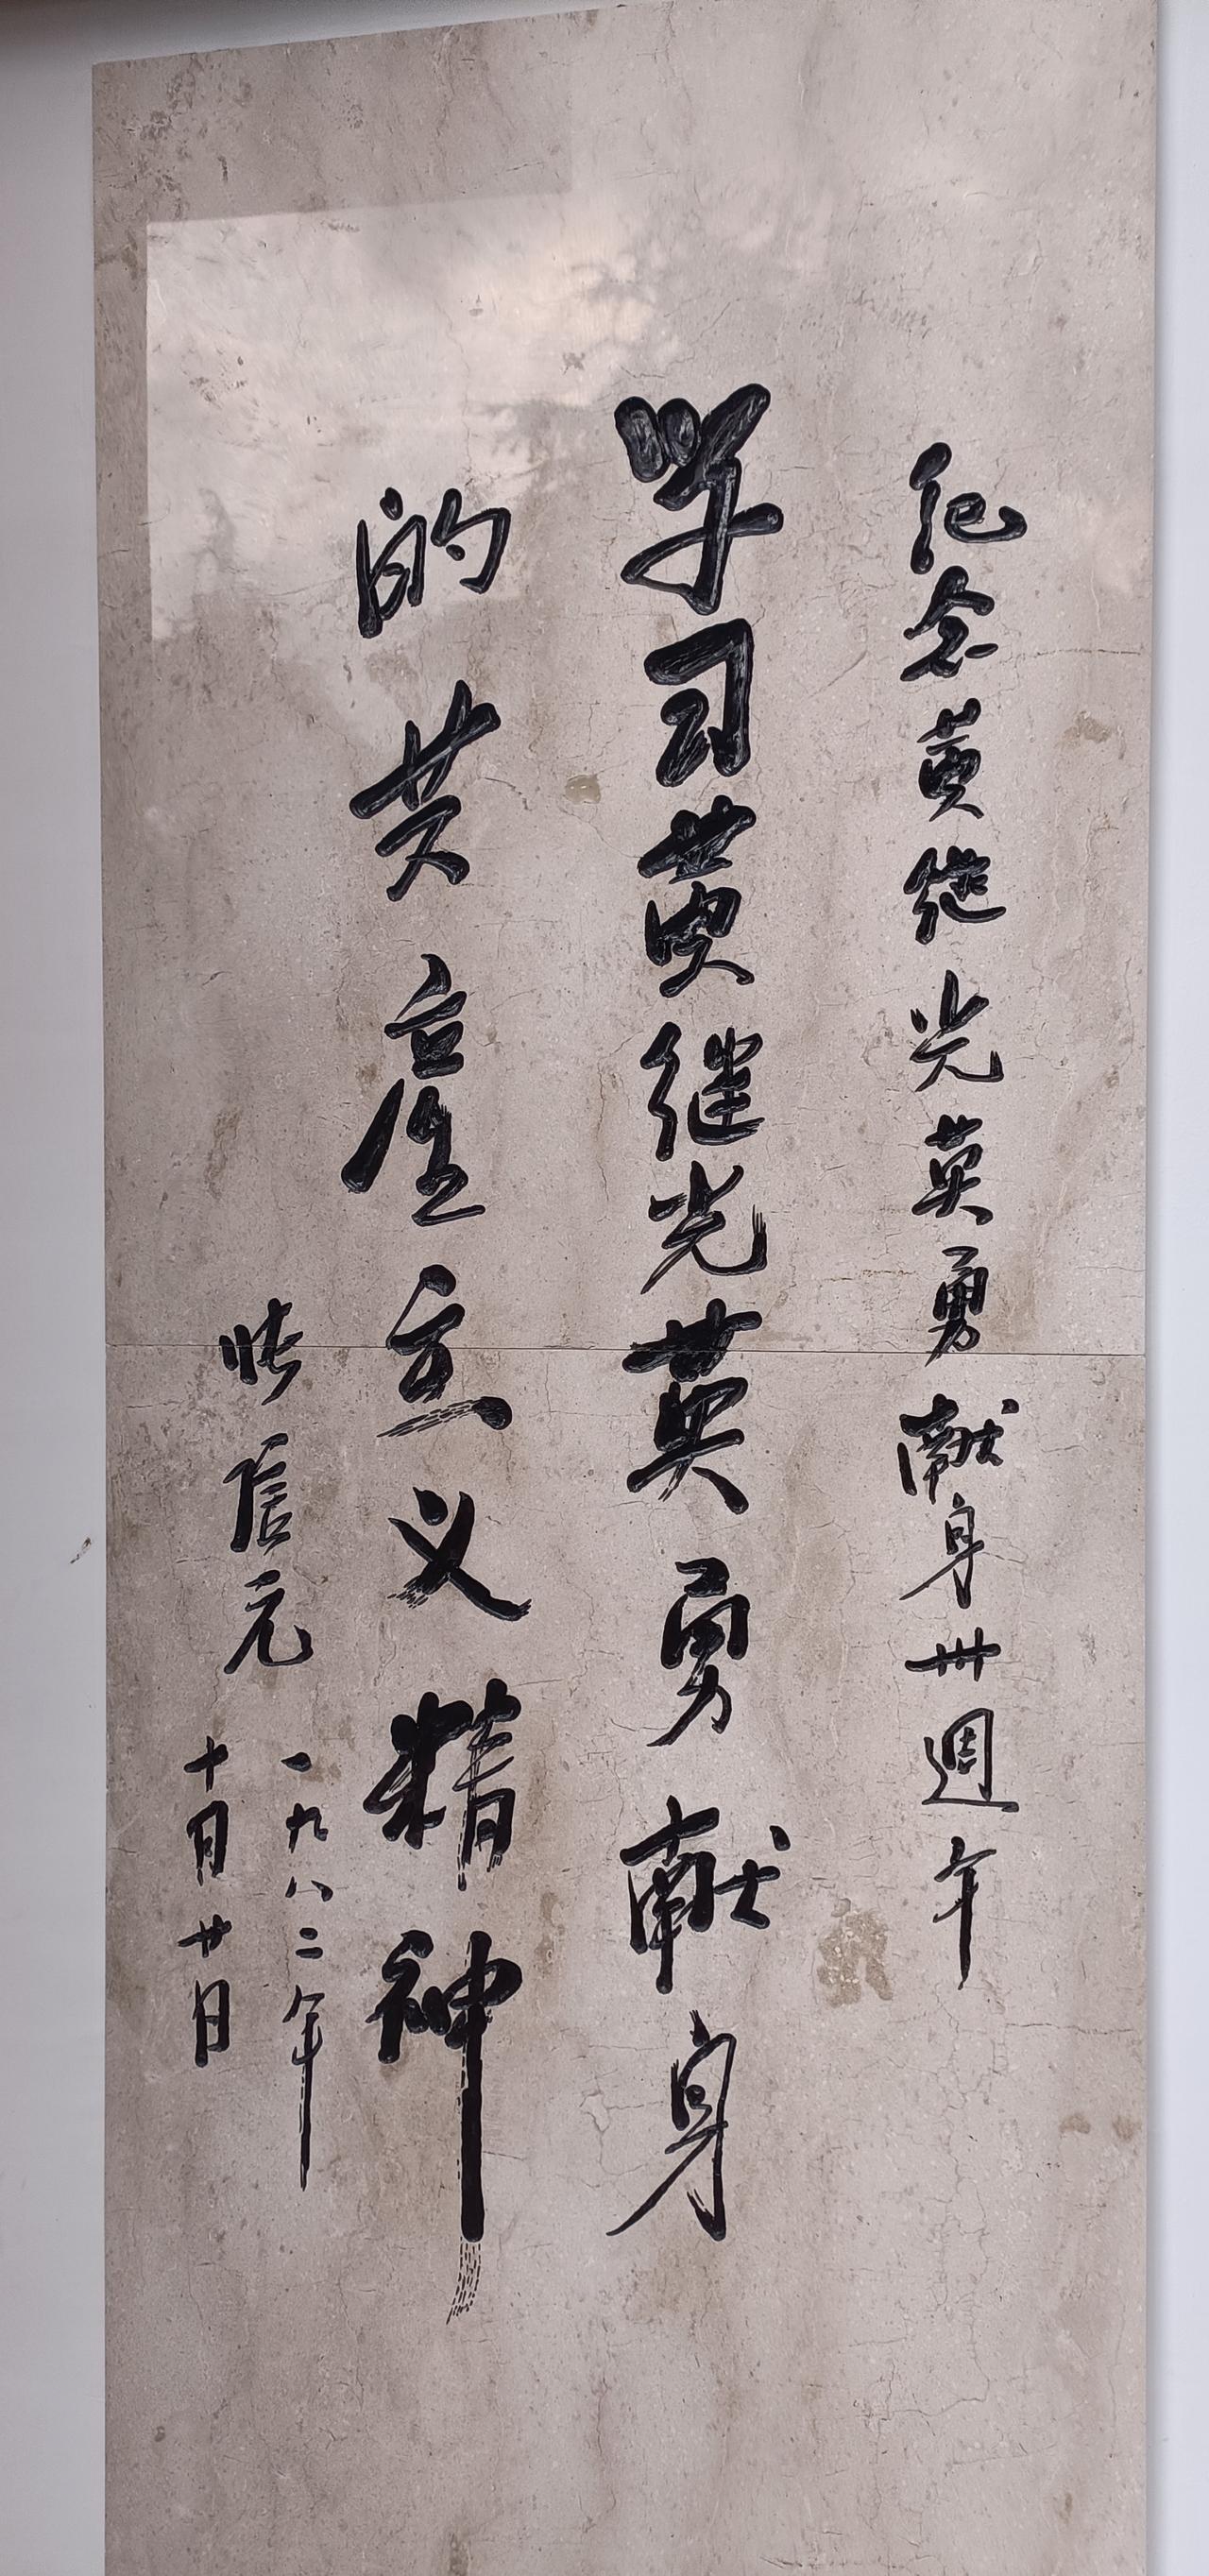 纪念黄继光英勇献身卅週年
学习黄继光英勇献身
的共产主义精神
张信元
一九八二年
十月廿日